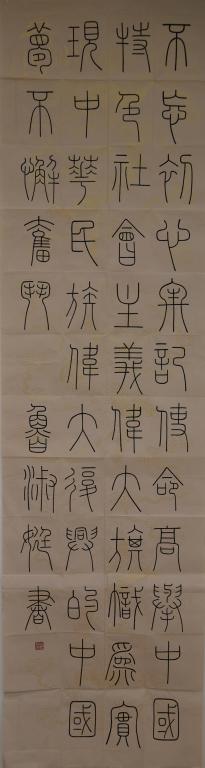 不忘初心牢記使命高舉中國
特色社會主義偉大旗幟爲實
現中華民族偉大復興的中國
夢不懈奮鬥
魯淑書